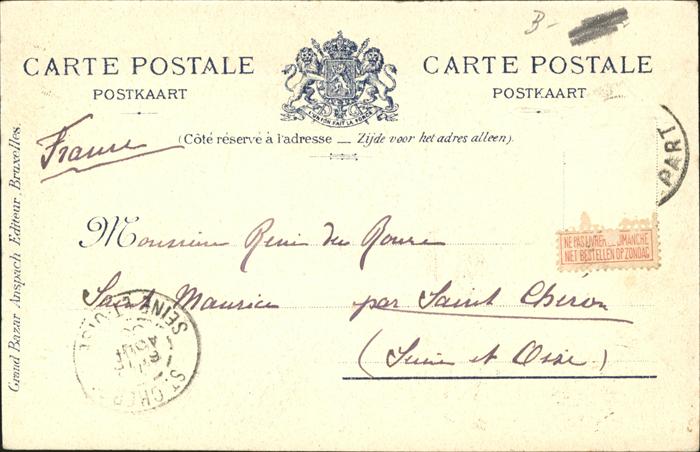 B-
CARTE POSTALE CARTE POSTALE
POSTKAART POSTKAART
L'UNION FAIT LA FORCE
(Côté réservé à l'adresse — Zijde voor het adres alleen).
France
PART
Monsieur René du
NE PAS LIVRER DIMANCHE
NIET BESTELLEN OP ZONDAG
Saint Maurice par Saint Chéron
(Seine et Oise)
ST CHER
SEINE ET OISE
AOUT
Grand Bazar Anspach Editeur, Bruxelles.